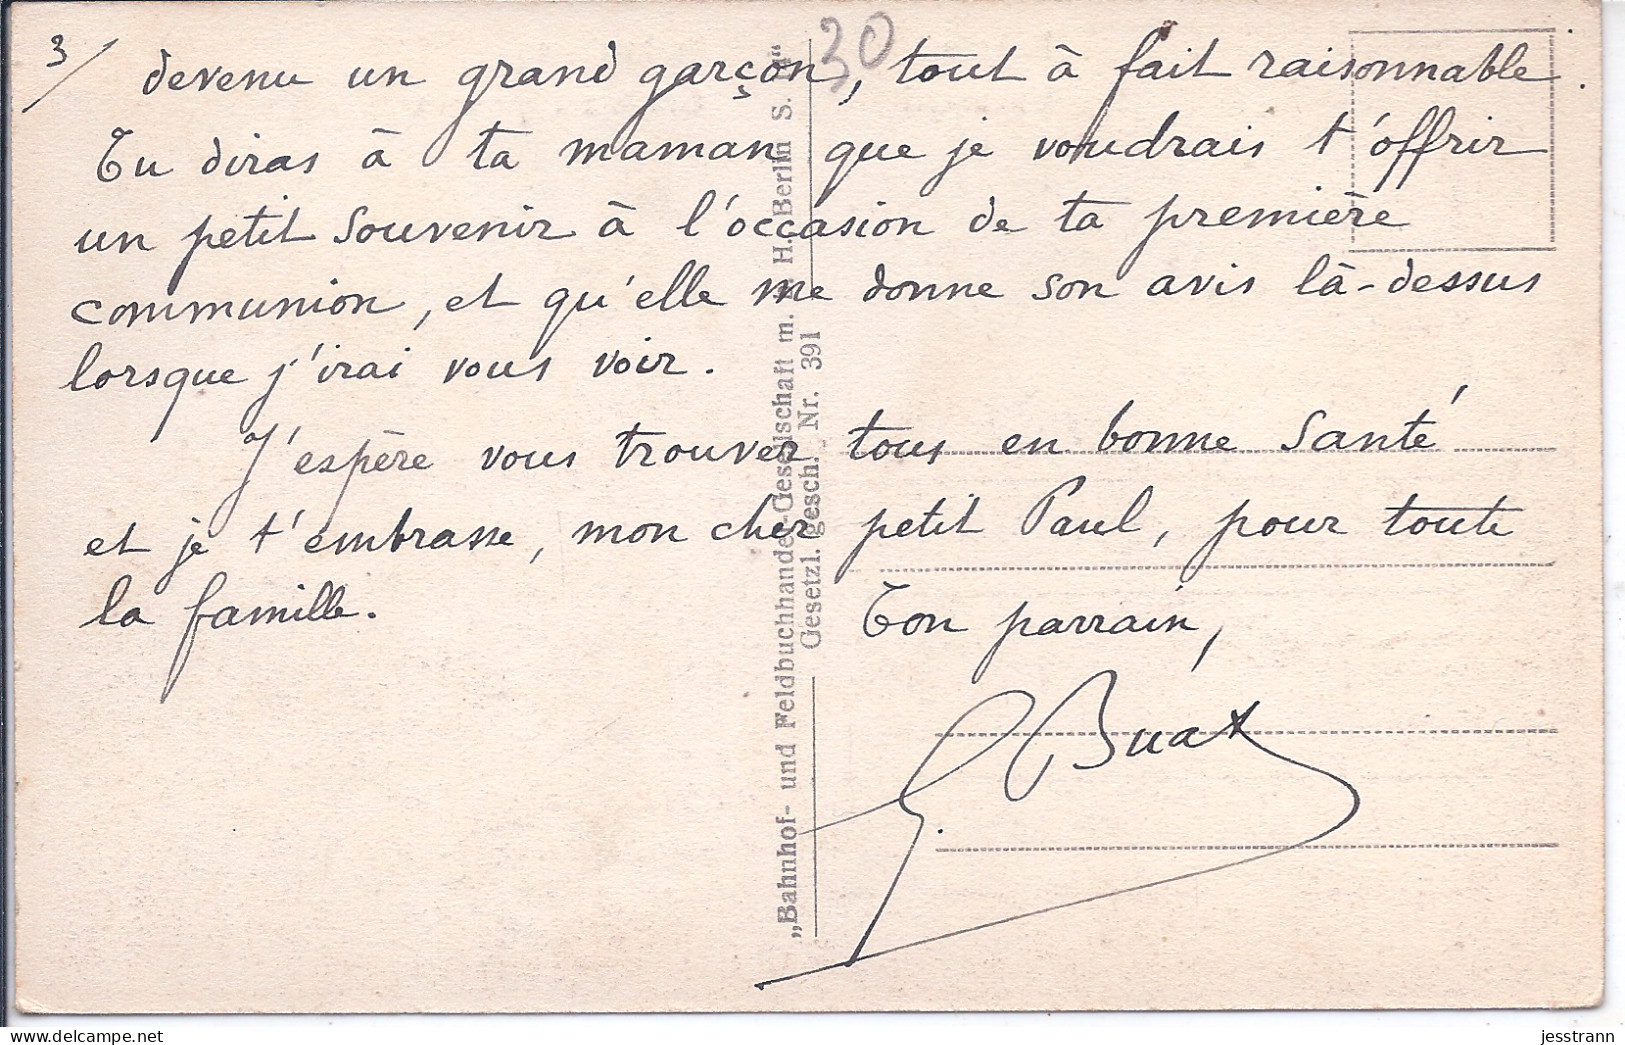 3/
30
devenu un grand garçon, tout à fait raisonnable.
Tu diras à ta maman que je voudrais t'offrir
un petit souvenir à l'occasion de ta première
communion, et qu'elle me donne son avis là-dessus
lorsque j'irai vous voir.
J'espère vous trouver tous en bonne santé
et je t'embrasse, mon cher petit Paul, pour toute
la famille.
Ton parrain,
Buat
„Bahnhof- und Feldbuchhandels-Gesellschaft m. H. Berlin S.
Gesetzl. gesch. Nr. 391
delcampe.net
jesstrann